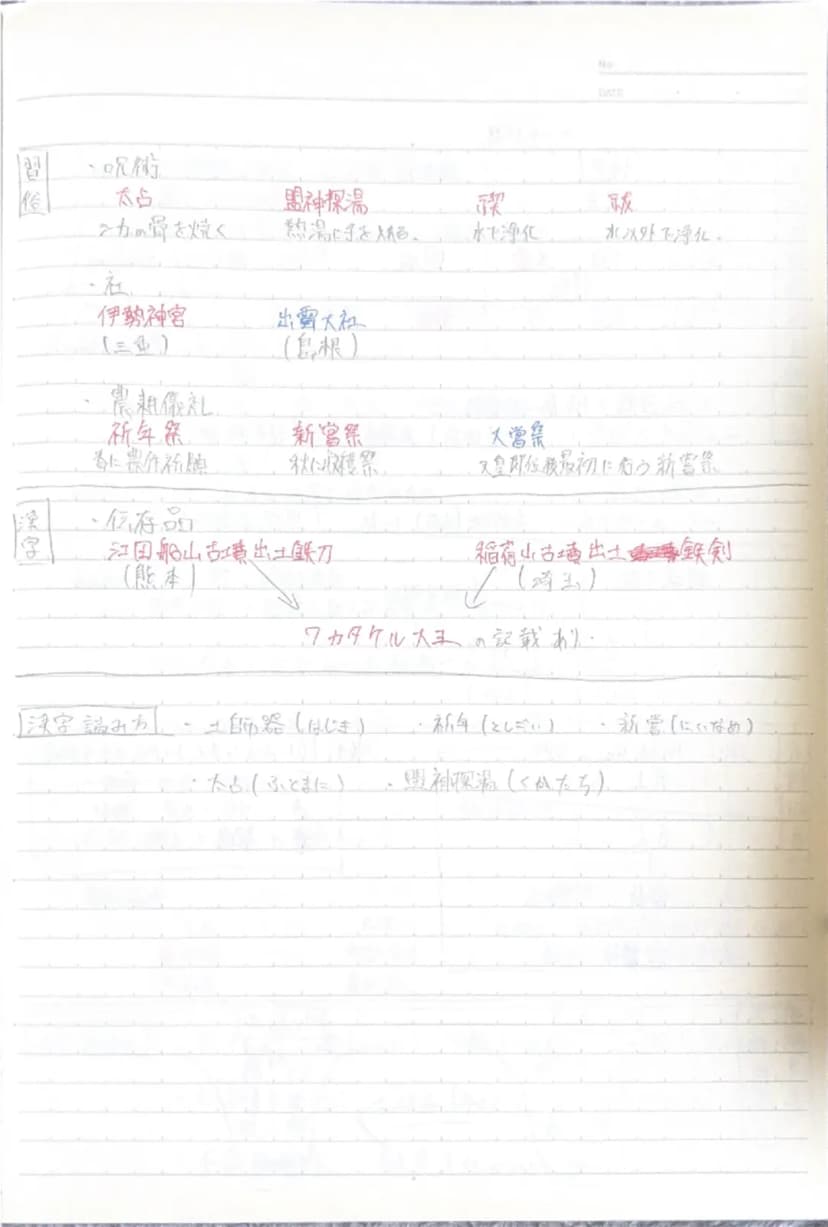 No
DATE
習俗
・呪術
太占 盟神探湯 禊 祓
シカの骨を焼く 熱湯に手を入れる。 水で浄化 水以外で浄化。
・社
伊勢神宮 出雲大社
(三重) (島根)
・農耕儀礼
祈年祭 新嘗祭 大嘗祭
春に豊作祈願 秋に収穫祭 天皇即位後最初に行う新嘗祭
漢字
・伝存品
江田船山古墳出土鉄刀 稲荷山古墳出土鉄剣
(熊本) (埼玉)
ワカタケル大王の記載あり.
漢字読み方 ・土師器(はじき) ・祈年(としごい) ・新嘗(にいなめ)
・太占(ふとまに) ・盟神探湯(くかたち)